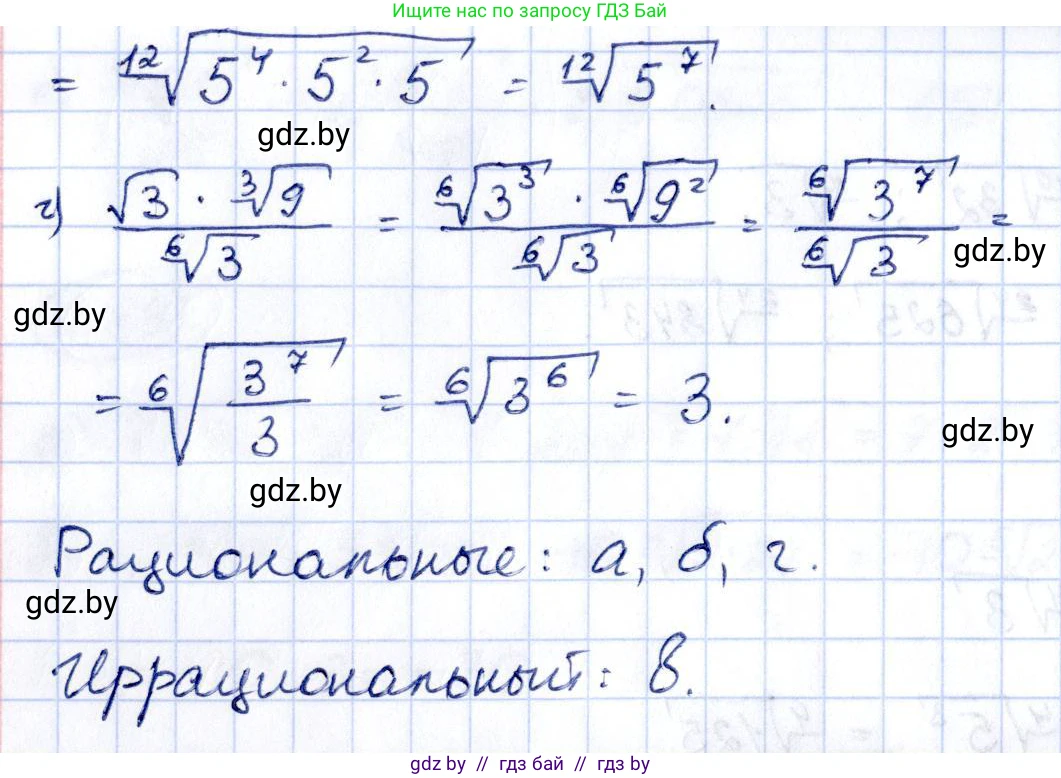 Ищите нас по запросу ГДЗ Бай
= ¹²√(5⁴ · 5² · 5) = ¹²√(5⁷).
gdz.by
г) (√3 · ³√9)/(⁶√3) = (⁶√(3³) · ⁶√(9²))/(⁶√3) = (⁶√(3⁷))/(⁶√3) =
gdz.by
gdz.by
= ⁶√(3⁷/3) = ⁶√(3⁶) = 3.
gdz.by
gdz.by
Рациональные: а, б, г.
gdz.by
Иррациональный: в.
gdz.by // гдз бай // гдз by